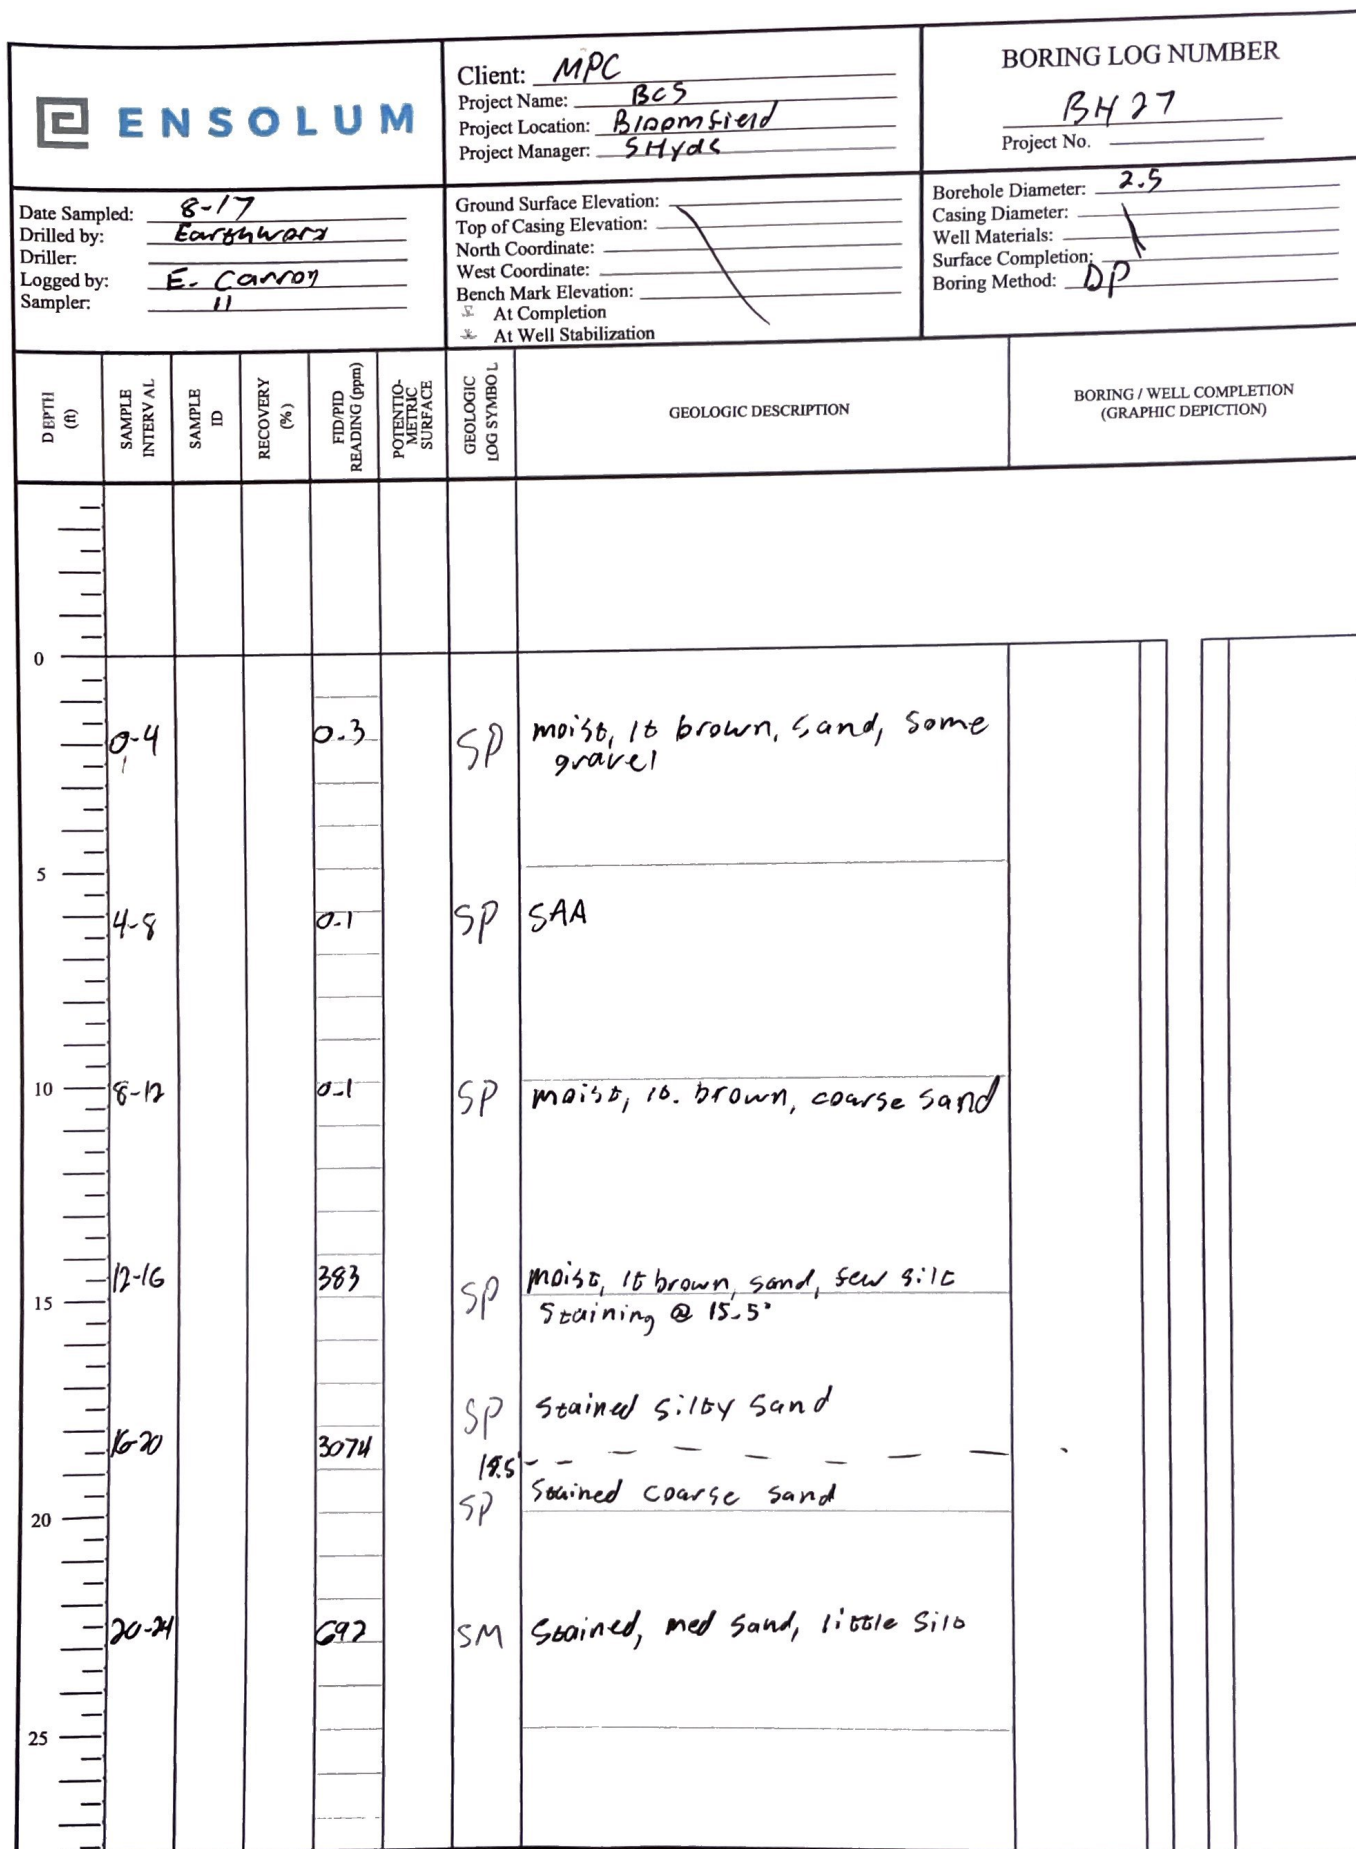 ENSOLUM
Client: MPC
Project Name: BCS
Project Location: Bloomfield
Project Manager: SHyde
BORING LOG NUMBER
BH27
Project No.
Date Sampled: 8-17
Drilled by: Earthworx
Driller:
Logged by: E. Carron
Sampler: 11
Ground Surface Elevation:
Top of Casing Elevation:
North Coordinate:
West Coordinate:
Bench Mark Elevation:
At Completion
At Well Stabilization
Borehole Diameter: 2.5
Casing Diameter:
Well Materials:
Surface Completion:
Boring Method: DP
DEPTH (ft)
SAMPLE INTERVAL
SAMPLE ID
RECOVERY (%)
FID/PID READING (ppm)
POTENTIO-METRIC SURFACE
GEOLOGIC LOG SYMBOL
GEOLOGIC DESCRIPTION
BORING / WELL COMPLETION
(GRAPHIC DEPICTION)
0
0-4 0.3 SP moist, lt brown, sand, some
gravel
5
4-8 0.1 SP SAA
10 8-12 0.1 SP moist, lt. brown, coarse sand
12-16 383 SP moist, lt brown, sand, few silt
15 Staining @ 15.5'
SP Stained silty sand
16-20 3074
18.5'
SP Stained coarse sand
20
20-24 692 SM Stained, med sand, little silt
25